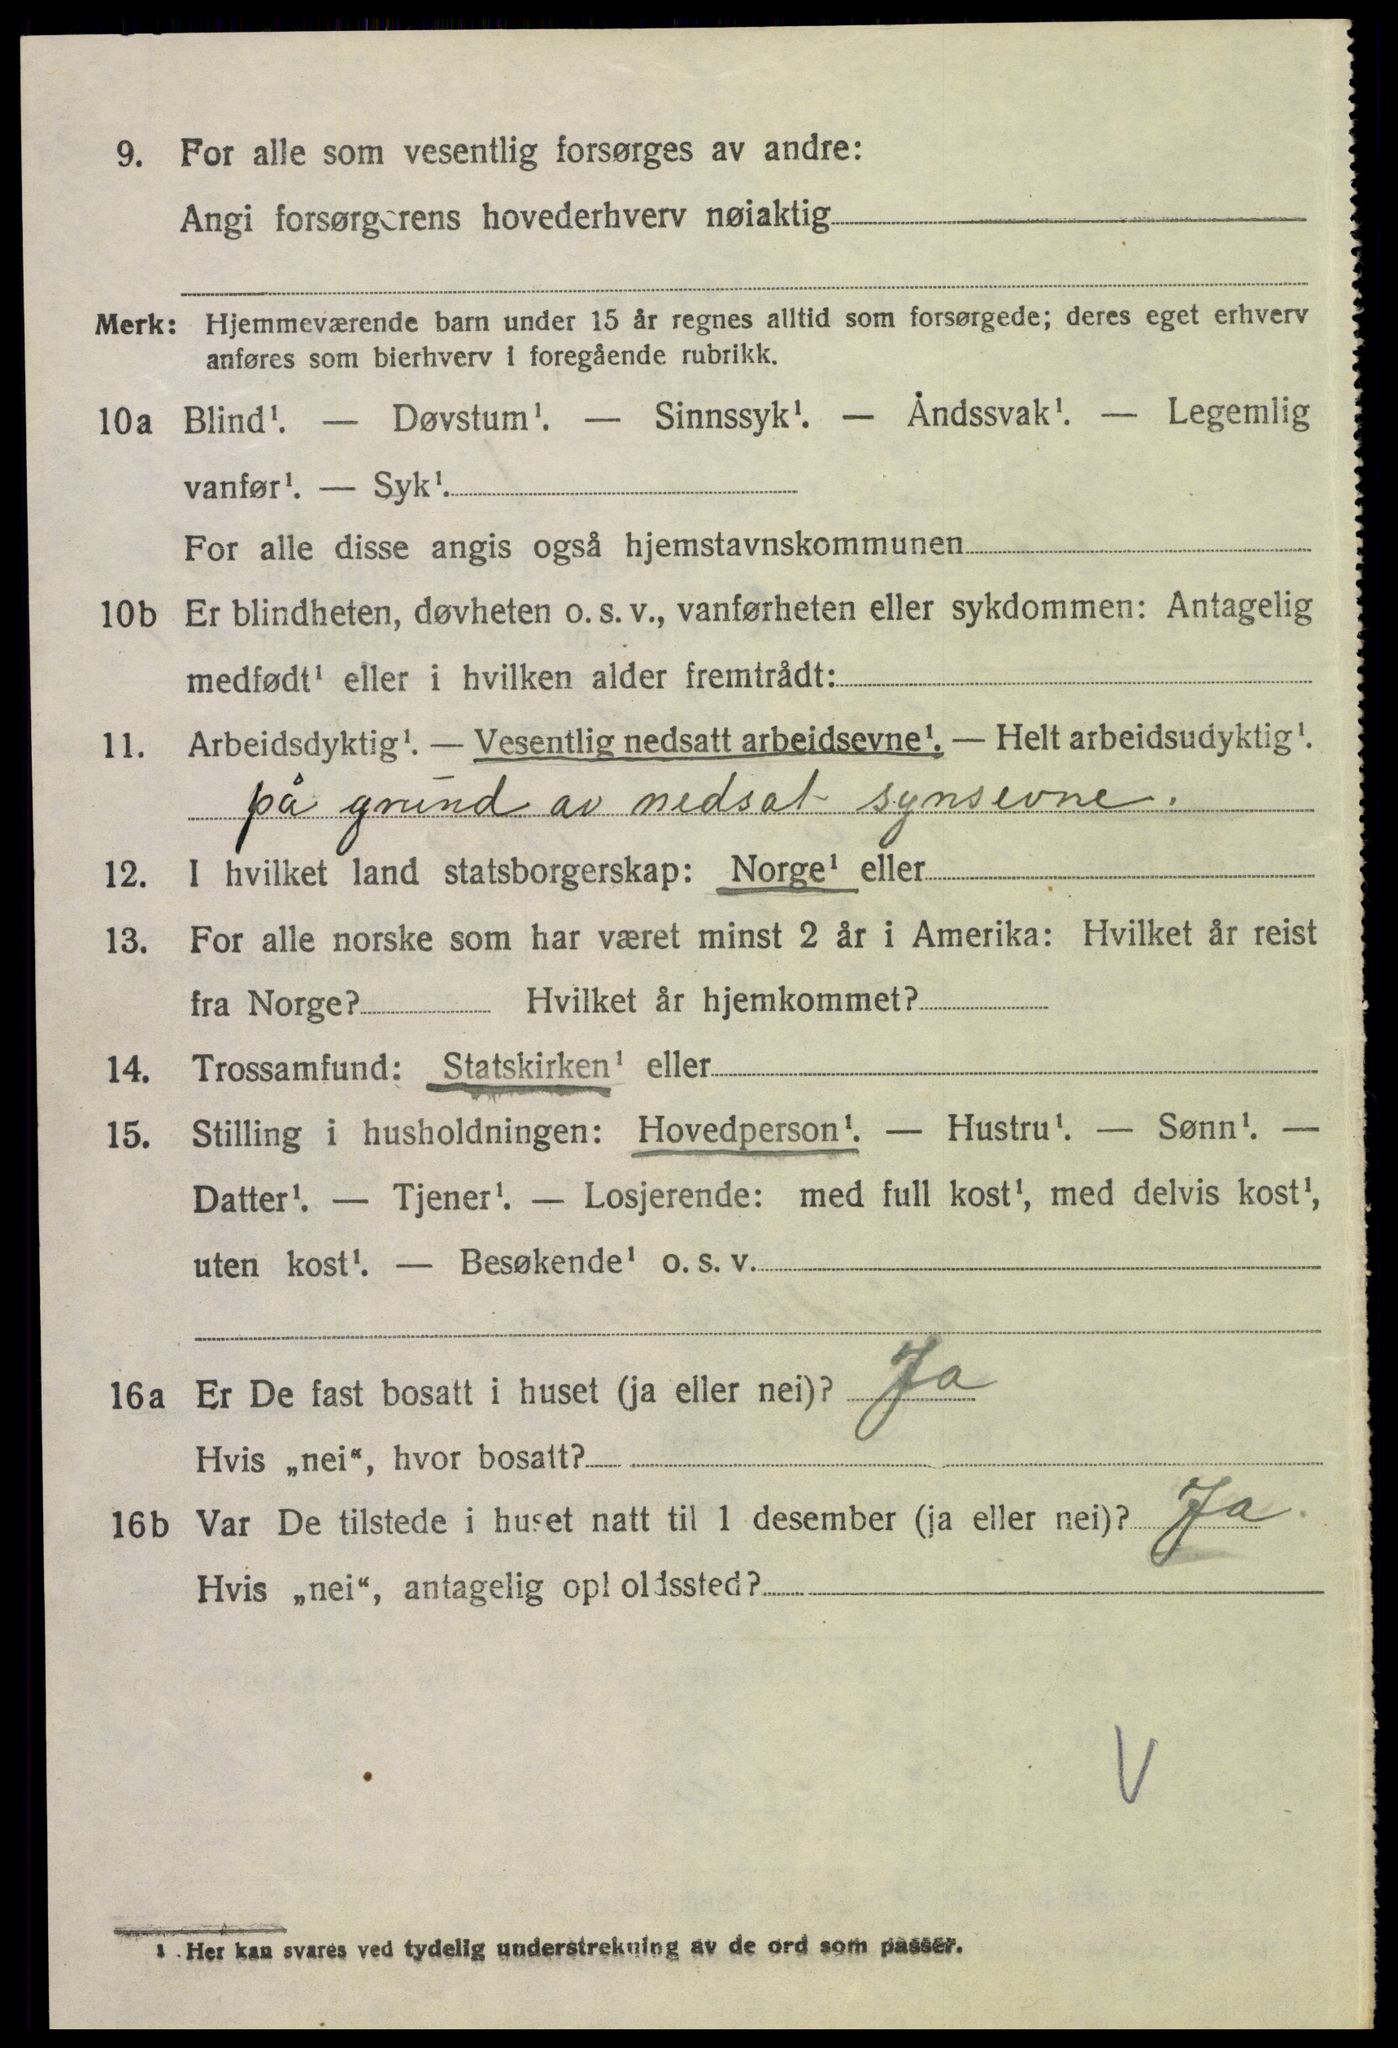 9. For alle som vesentlig forsørges av andre:
Angi forsørgerens hovederhverv nøiaktig
Merk: Hjemmeværende barn under 15 år regnes alltid som forsørgede; deres eget erhverv
anføres som bierhverv i foregående rubrikk.
10a Blind¹. — Døvstum¹. — Sinnssyk¹. — Åndssvak¹. — Legemlig
vanfør¹. — Syk¹.
For alle disse angis også hjemstavnskommunen
10b Er blindheten, døvheten o. s. v., vanførheten eller sykdommen: Antagelig
medfødt¹ eller i hvilken alder fremtrådt:
11. Arbeidsdyktig¹. — Vesentlig nedsatt arbeidsevne¹. — Helt arbeidsudyktig¹.
på grund av nedsat synsevne.
12. I hvilket land statsborgerskap: Norge¹ eller
13. For alle norske som har været minst 2 år i Amerika: Hvilket år reist
fra Norge? Hvilket år hjemkommet?
14. Trossamfund: Statskirken¹ eller
15. Stilling i husholdningen: Hovedperson¹. — Hustru¹. — Sønn¹. —
Datter¹. — Tjener¹. — Losjerende: med full kost¹, med delvis kost¹,
uten kost¹. — Besøkende¹ o. s. v.
16a Er De fast bosatt i huset (ja eller nei)? Ja
Hvis „nei“, hvor bosatt?
16b Var De tilstede i huset natt til 1 desember (ja eller nei)? Ja.
Hvis „nei“, antagelig opholdssted?
V
1 Her kan svares ved tydelig understrekning av de ord som passer.